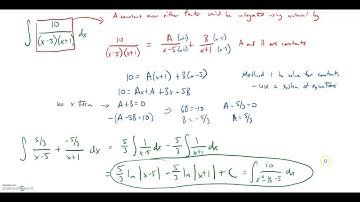 ∫ 10/((x-5)(x+1)) dx
A constant over either factor could be integrated using natural log
10/((x-5)(x+1)) = A(x+1)/(x-5)(x+1) + B(x-5)/(x+1)(x-5) A and B are constants
10 = A(x+1) + B(x-5)
Method 1 to solve for constants
10 = Ax + A + Bx - 5B
- use a system of equations
no x term → A + B = 0
-(A - 5B = 10)
6B = -10
B = -5/3
A - 5/3 = 0
A = 5/3
∫ (5/3)/(x-5) + (-5/3)/(x+1) dx = 5/3 ∫ 1/(x-5) dx - 5/3 ∫ 1/(x+1) dx
= 5/3 ln|x-5| - 5/3 ln|x+1| + C = ∫ 10/(x²-4x-5) dx